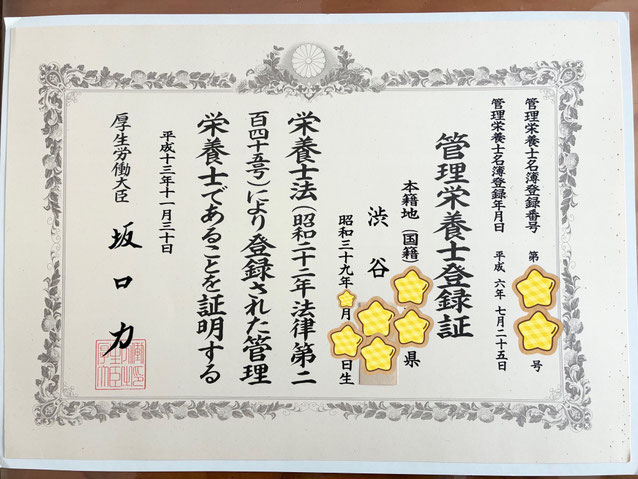 管理栄養士名簿登録番号 第 号
管理栄養士名簿登録年月日 平成六年七月二十五日
管理栄養士登録証
本籍地(国籍) 県
渋谷
昭和三十九年 月 日生
栄養士法(昭和二十二年法律第二
百四十五号)により登録された管理
栄養士であることを証明する
平成十三年十一月三十日
厚生労働大臣 坂口力